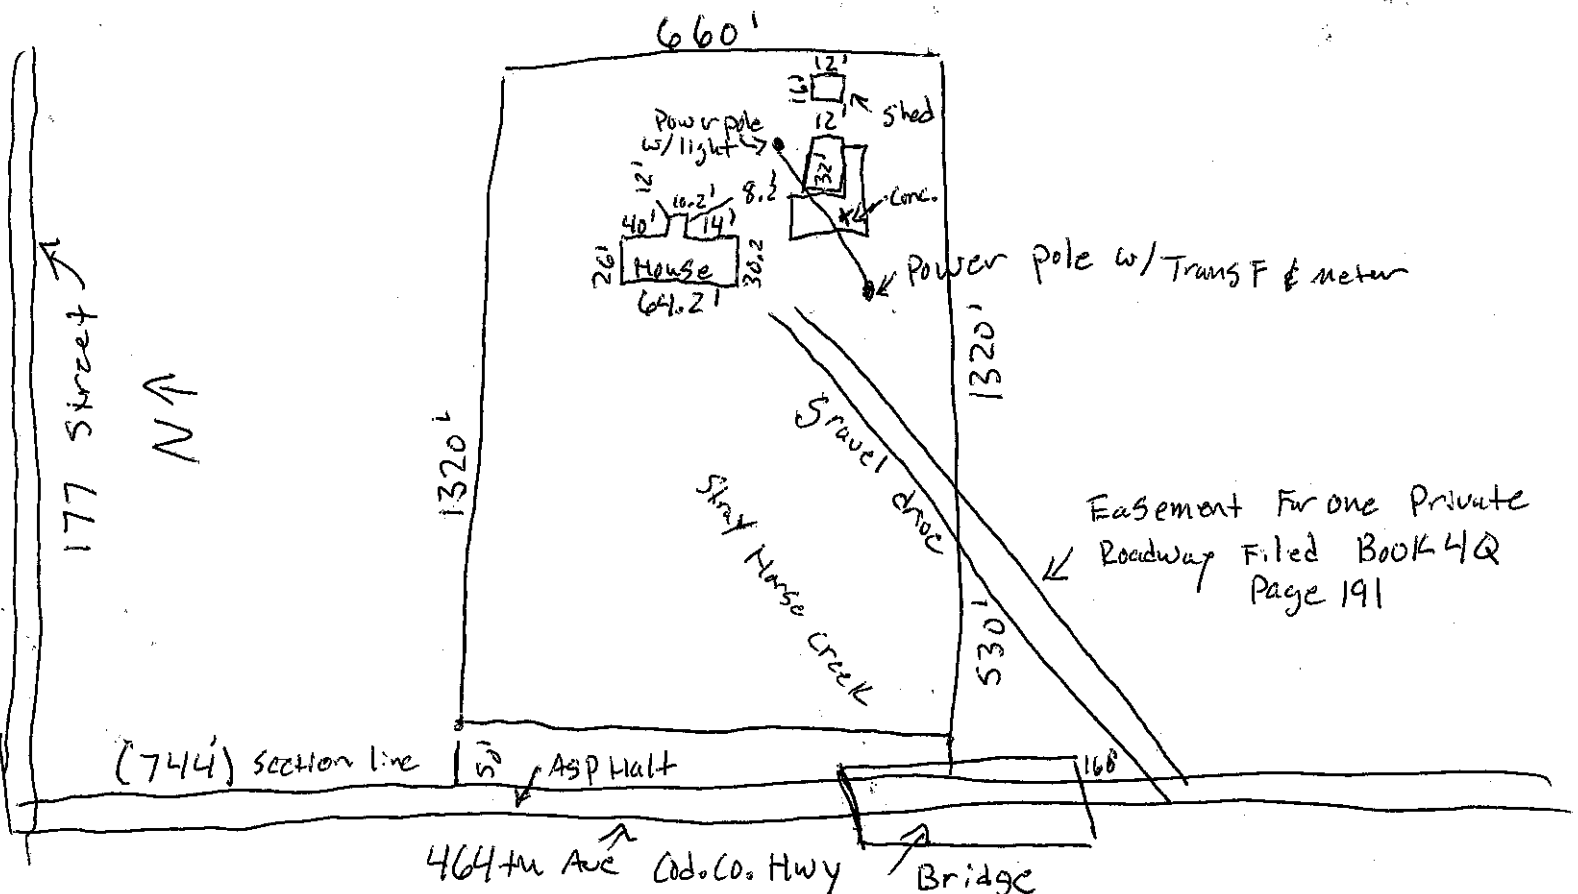 660'
12'
16'
shed
Power pole
w/ light
12'
32'
conc.
12'
10.2'
8.2'
40'
14'
26'
House
30.2
64.2'
Power pole w/ Trans F & meter
177 Street
N
1320'
1320'
Gravel drive
Stray Horse Creek
530'
Easement For one Private
Roadway Filed Book 4Q
Page 191
(744') section line
50'
Asphalt
168'
464th Ave Cod. Co. Hwy
Bridge